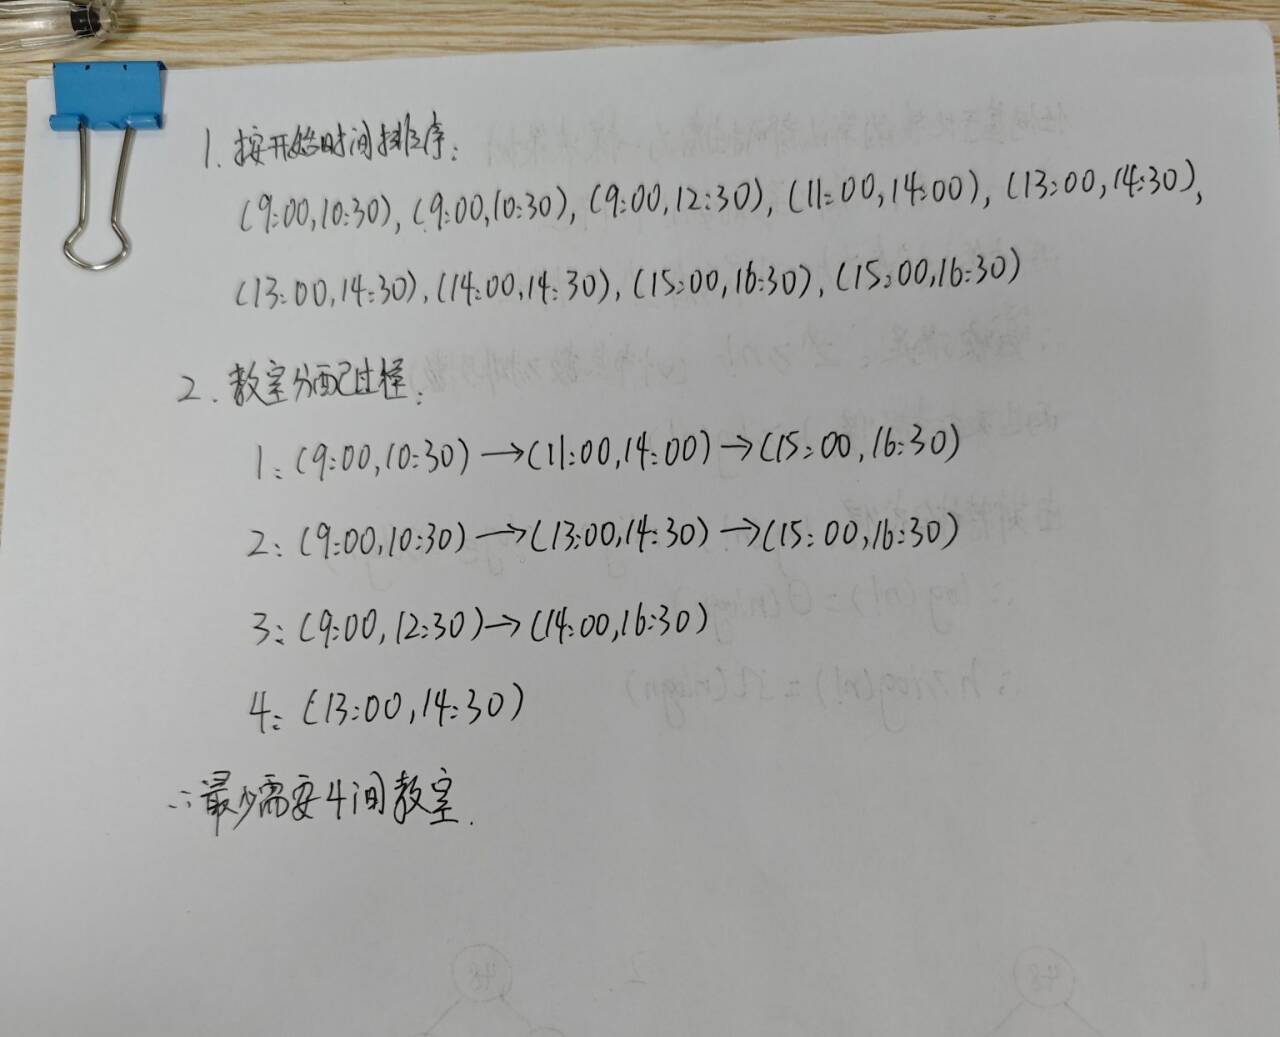 1. 按开始时间排序:
(9:00,10:30), (9:00,10:30), (9:00,12:30), (11:00,14:00), (13:00,14:30),
(13:00,14:30), (14:00,14:30), (15:00,16:30), (15:00,16:30)
2. 教室分配过程:
1: (9:00,10:30)→(11:00,14:00)→(15:00,16:30)
2: (9:00,10:30)→(13:00,14:30)→(15:00,16:30)
3: (9:00,12:30)→(14:00,16:30)
4: (13:00,14:30)
∴最少需要4间教室.